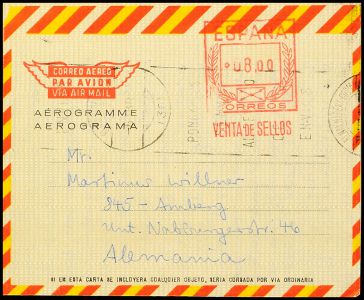 ESPAÑA
*08,00
CORREOS
VENTA DE SELLOS
CORREO AEREO
PAR AVION
VIA AIR MAIL
AÉROGRAMME
AEROGRAMA
Mr.
Martinus Willner
845 - Amberg
Unt. Nabburgerstr. 46
Alemania
SI EN ESTA CARTA SE INCLUYERA CUALQUIER OBJETO, SERIA CORSADA POR VIA ORDINARIA